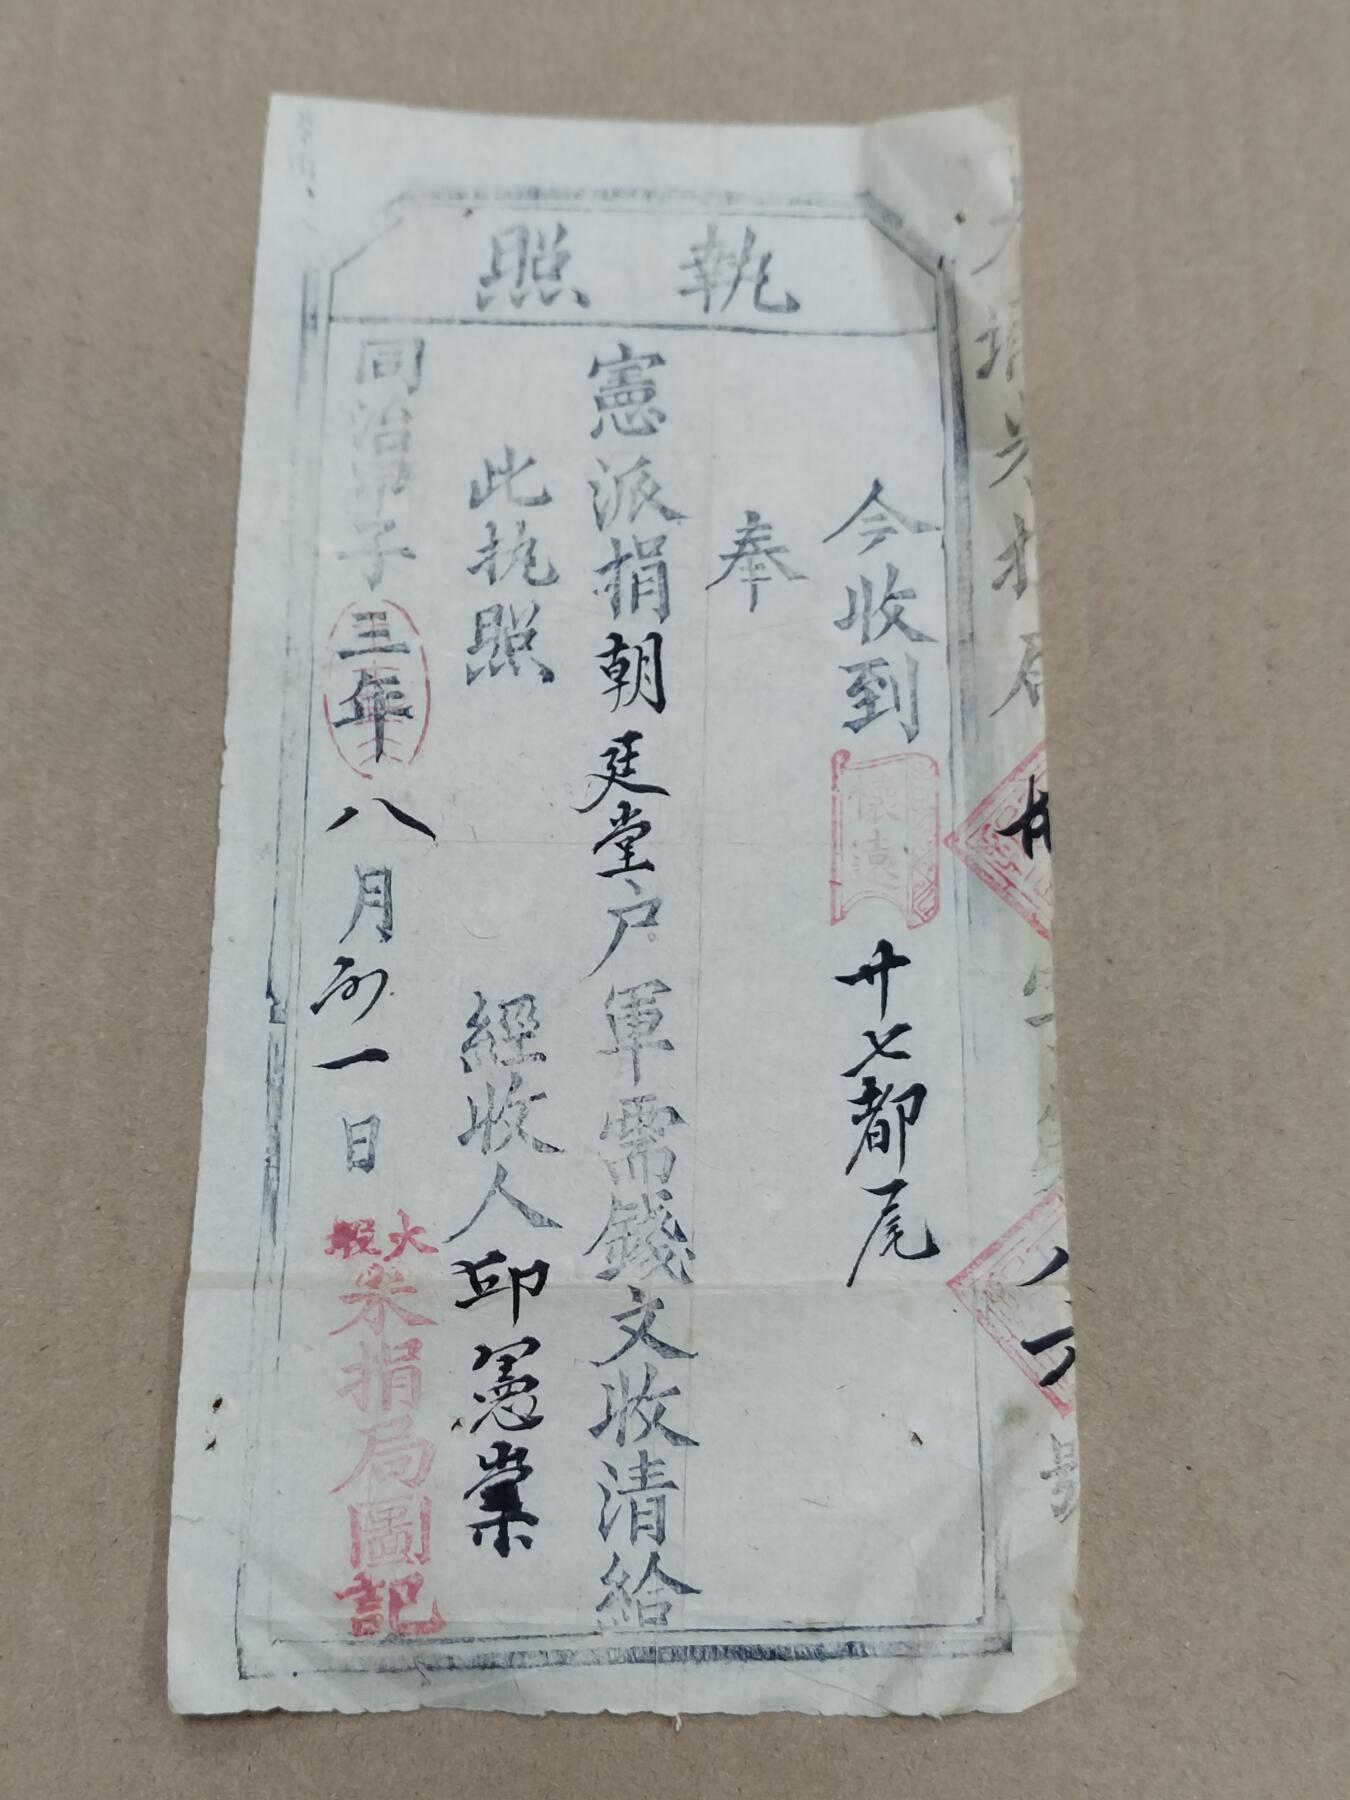 執照
今收到懷遠廿七都尾
奉
憲派捐朝廷堂户軍需錢文收清給
此执照 經收人邱憲棠
同治甲子三年八月初一日
大股米捐局圖記
號